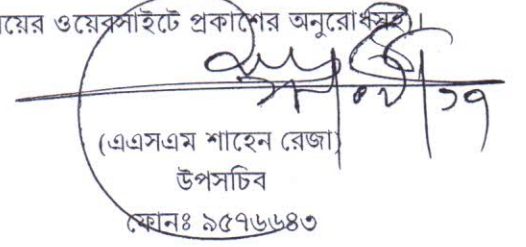 য়ের ওয়েবসাইটে প্রকাশের অনুরোধসহ)।
(এএসএম শাহেন রেজা)
উপসচিব
ফোনঃ ৯৫৭৬৬৪৩